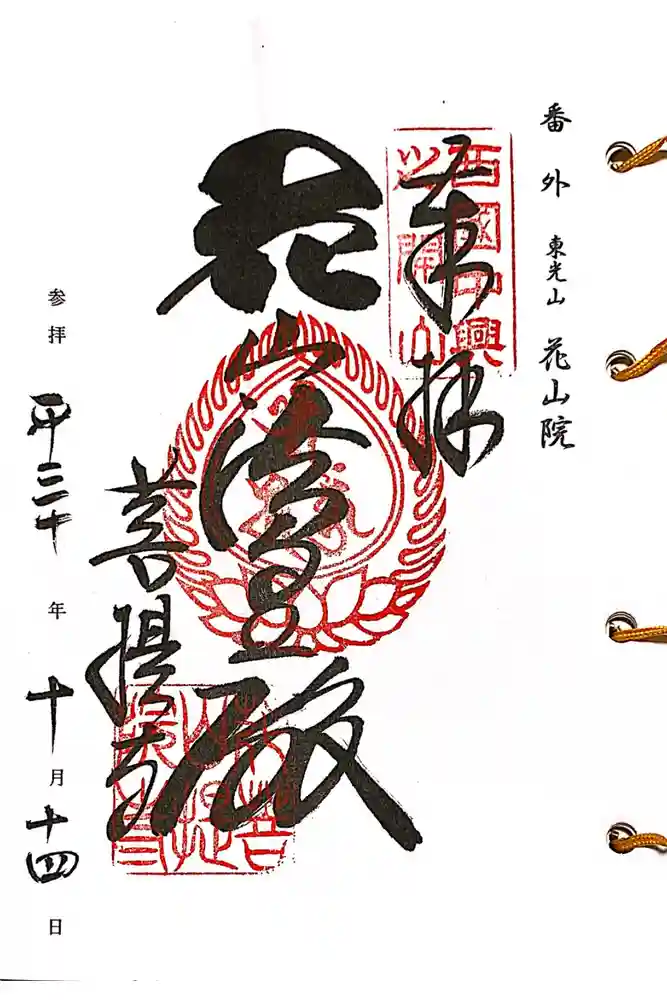 番外 東光山 花山院
奉拝
西國中興
開山
花山法皇殿
菩提寺
参拝 平三十年十月十四日